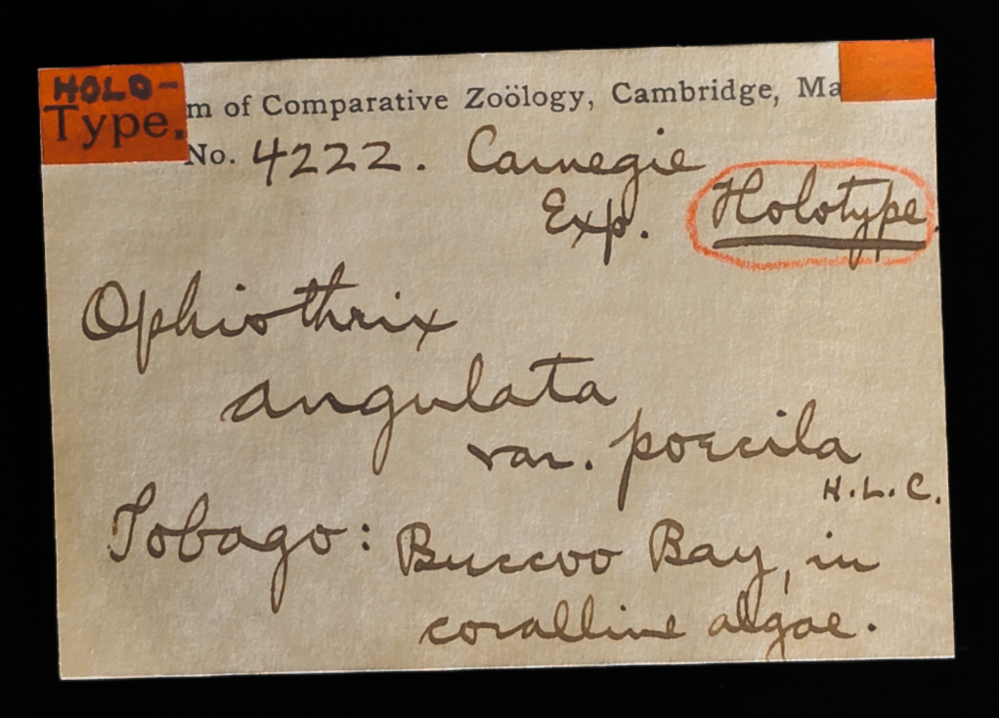 HOLO-
Type.
m of Comparative Zoölogy, Cambridge, Ma
No. 4222. Carnegie
Exp. Holotype.
Ophiothrix
angulata
var. poecila
H.L.C.
Tobago: Buccoo Bay, in
coralline algae.